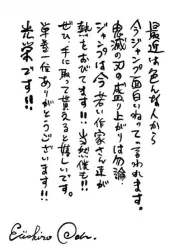 最近は色んな人から
今ジャンプ面白いねって言われます。
鬼滅の刃の盛り上がりは勿論、
ジャンプは今若い作家さん達が
熱をおびています!!当然僕も!!
ぜひ、手に取って貰えると嬉しいです。
単巻一位ありがとうございます
光栄です!!
Eiichiro Oda.